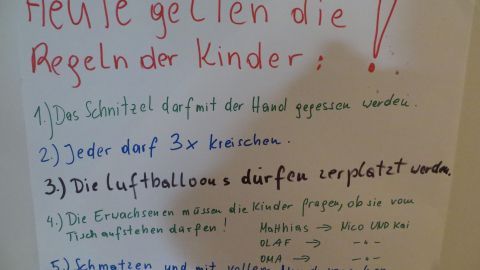 Heute gelten die
Regeln der Kinder: !
1.) Das Schnitzel darf mit der Hand gegessen werden.
2.) Jeder darf 3x kreischen.
3.) Die Luftballoons dürfen zerplatzt werden.
4.) Die Erwachsenen müssen die Kinder fragen, ob sie vom
Tisch aufstehen dürfen!
Matthias → Nico UND Kai
OLAF → -"-
OMA → -"-
5.) Schmatzen und mit vollem